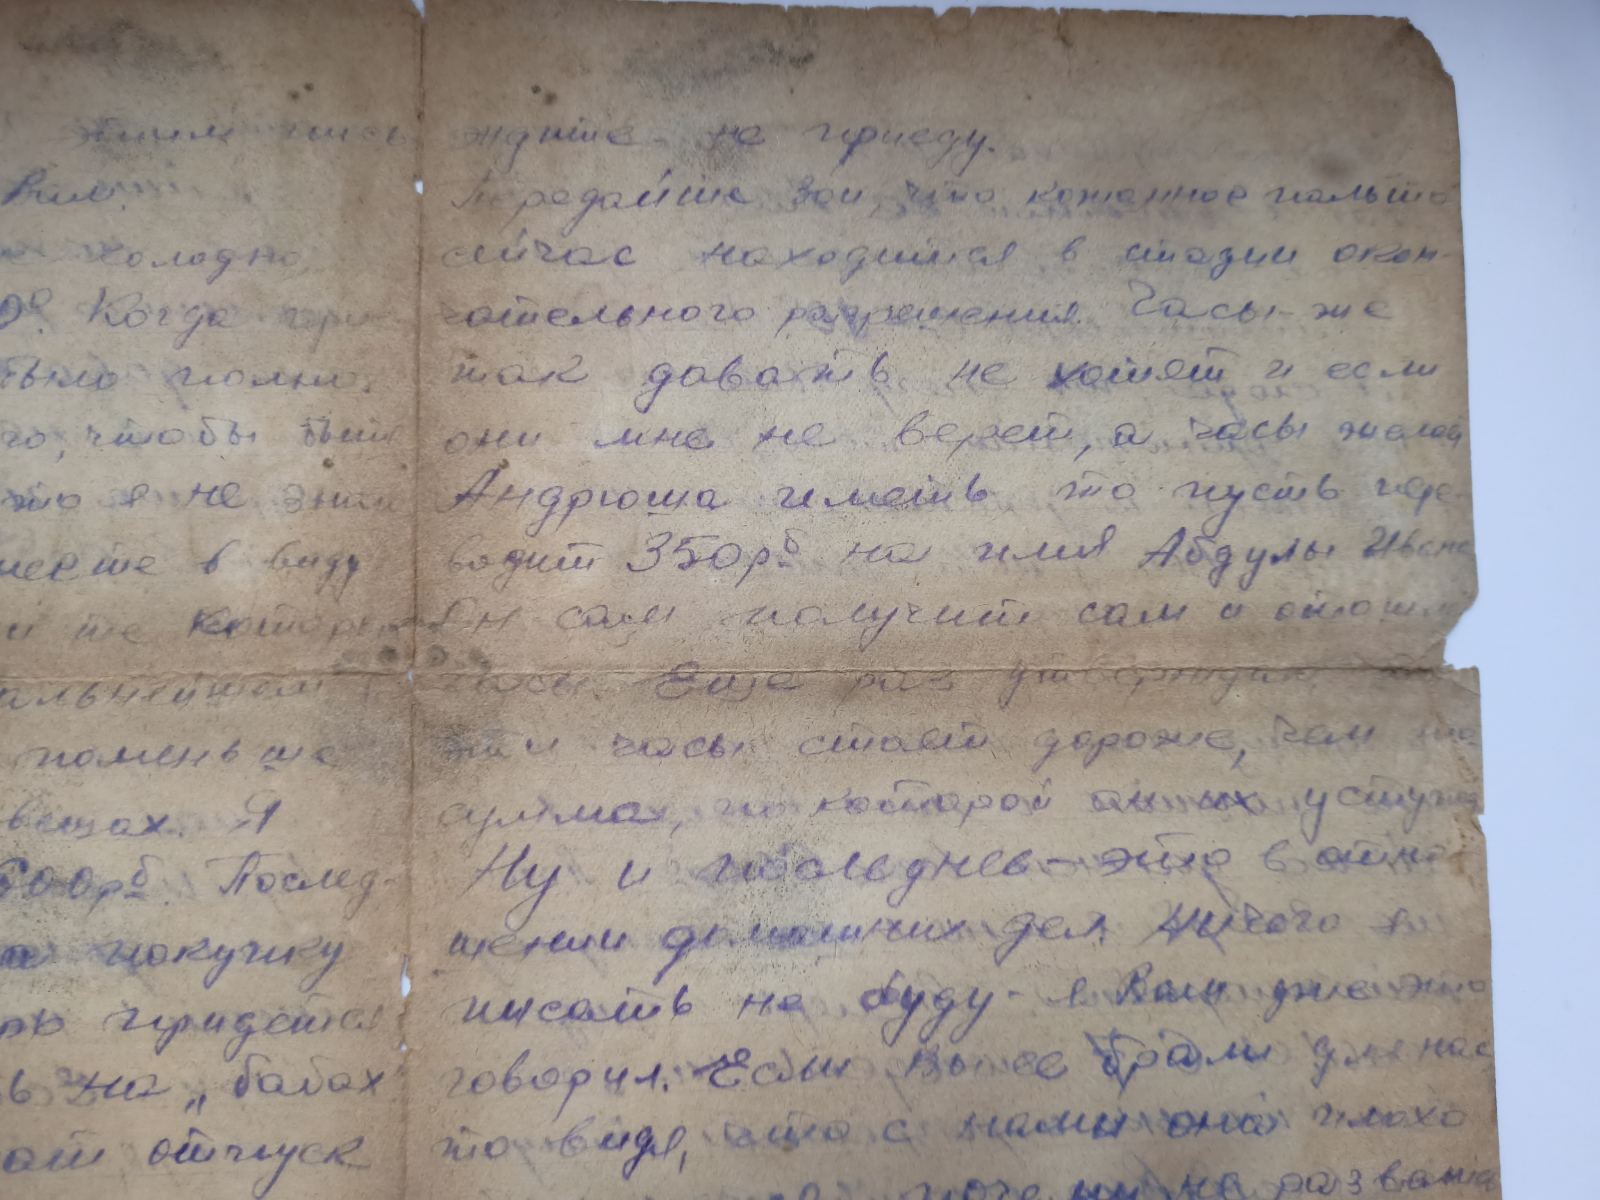 этим пись
Вам.
холодно
0°. Когда при-
было полно.
го, чтобы были
что я не знаю
меете в виду
и те которые
альнейшем
поменьше
вещах. Я
600 рб. Послед-
покупку
придется
ь на „бабах
отпуск
ждите - не приеду.
Передайте Зои, что кожанное пальто
сейчас находится в стадии окон-
чательного разрешения. Часы же
так давать не хотят и если
они мне не верет, а часы желай
Андрюша иметь то пусть пере-
водит 350 рб на имя Абдулы Ивана
Он сам получит сам и отошлё
часы. Еще раз утверждаю
эти часы стоят дороже, чем та
сумма, по которой он их уступа
Ну и последнее - это в отно-
шении домашних дел. Ничего я
писать не буду - я Вам уже это
говорил. Если Вы ее брали для нас
то видя, что с нами она плохо
почему не развяза